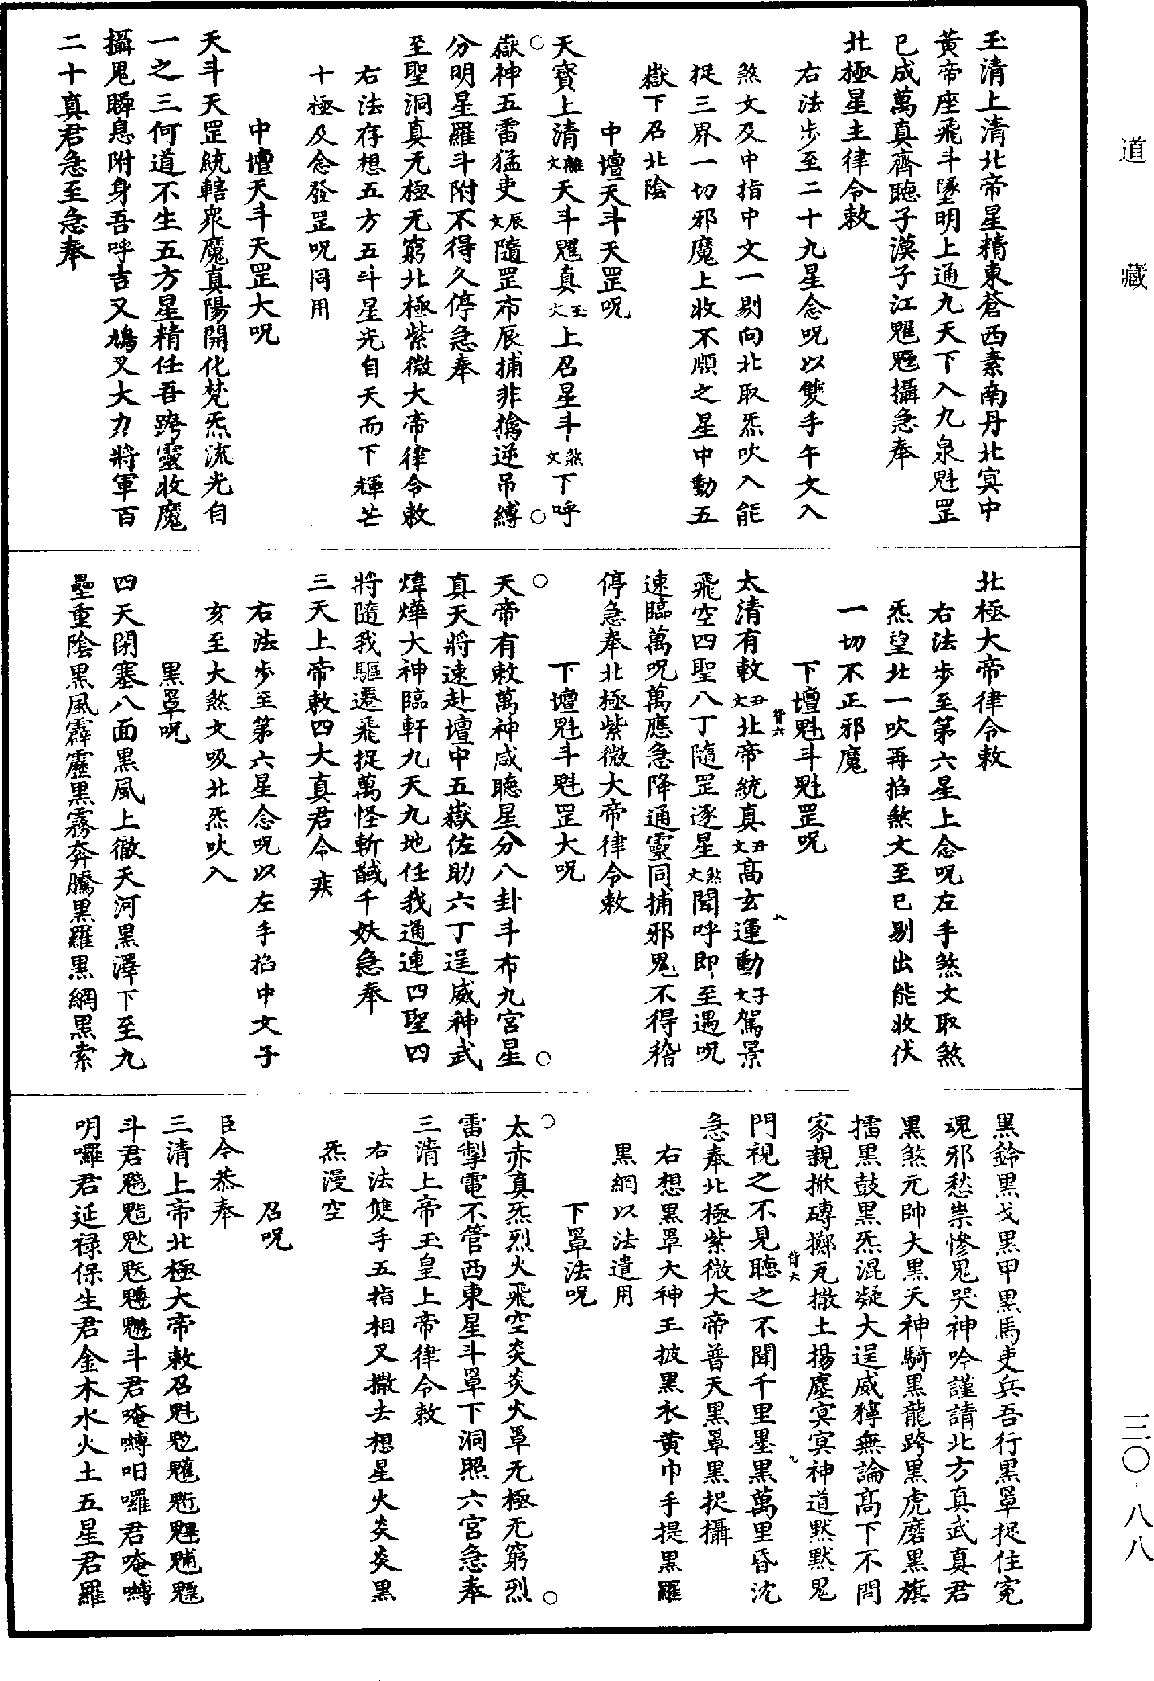 道藏
三〇·八八
玉清上清北帝星精東蒼西素南丹北㝠中
黃帝座飛斗墜明上通九天下入九泉魁罡
已成萬真齊聽子漠子江魒魓攝急奉
北極星主律令敕
右法步至二十九星念呪以雙手午文入
煞文及中指中文一剔向北取炁吹入能
捉三界一切邪魔上收不順之星中動五
嶽下召北陰
中壇天斗天罡呪
天寶上清離文天斗魓真玉文上召星斗煞文下呼
嶽神五雷猛吏辰文隨罡布辰捕非擒逆吊縛
分明星羅斗附不得久停急奉
至聖洞真无極无窮北極紫微大帝律令敕
右法存想五方五斗星光自天而下輝芒
十極及念發罡呪同用
中壇天斗天罡大呪
天斗天罡統轄衆魔真陽開化梵炁流光自
一之三何道不生五方星精任吾跨靈收魔
攝鬼瞬息附身吾呼吉叉鳩叉大力將軍百
二十真君急至急奉
北極大帝律令敕
右法步至第六星上念呪左手煞文取煞
炁望北一吹再掐煞文至巳剔出能收伏
一切不正邪魔
下壇魁斗魁罡呪
太清有敕丑文北帝統真丑文高玄運動子文駕景
飛空四聖八丁隨罡逐星煞文聞呼即至遇呪
速臨萬呪萬應急降通靈同捕邪鬼不得稽
停急奉北極紫微大帝律令敕
下壇魁斗魁罡大呪
天帝有敕萬神咸聽星分八卦斗布九宮星
真天將速赴壇中五嶽佐助六丁逞威神武
煒燁大神臨軒九天九地任我通連四聖四
將隨我驅遷飛捉萬怪斬馘千妖急奉
三天上帝敕四大真君令疾
右法步至第六星念呪以左手掐中文子
亥至大煞文吸北炁吹入
黑罩呪
四天閉塞八面黑風上徹天河黑澤下至九
壘重陰黑風霹靂黑霧奔騰黑羅黑網黑索
黑鈴黑戈黑甲黑馬吏兵吾行黑罩捉住寃
魂邪愁祟慘鬼哭神吟謹請北方真武真君
黑煞元帥大黑天神騎黑龍跨黑虎磨黑旗
擂黑鼓黑炁混凝大逞威獰無論高下不問
家親掀磚擲瓦撒土揚塵㝠㝠神道默默鬼
門視之不見聽之不聞千里墨黑萬里昏沈
急奉北極紫微大帝普天黑罩黑捉攝
右想黑罩大神王披黑衣黃巾手提黑羅
黑網以法遣用
下罩法呪
太赤真炁烈火飛空炎炎火罩无極无窮烈
雷掣電不管西東星斗罩下洞照六宮急奉
三清上帝玉皇上帝律令敕
右法雙手五指相叉撒去想星火炎炎黑
炁漫空
召呪
臣令恭奉
三清上帝北極大帝敕召魁䰢魓
斗君斗君唵嚩呬囉君唵嚩
明囉君延祿保生君金木水火土五星君羅